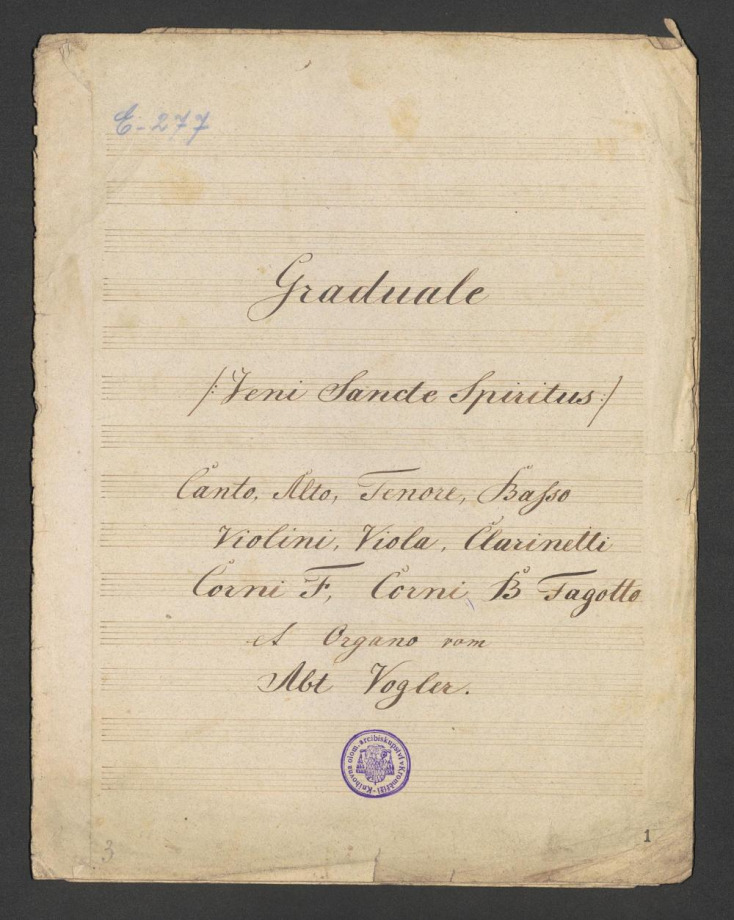 E-277
Graduale
/: Veni Sancte Spiritus :/
Canto, Alto, Tenore, Baſso
Violini, Viola, Clarinetti
Corni F, Corni B Fagotto
et Organo vom
Abt Vogler.
Knihovna olom. arcibiskupství v Kroměříži
3
1